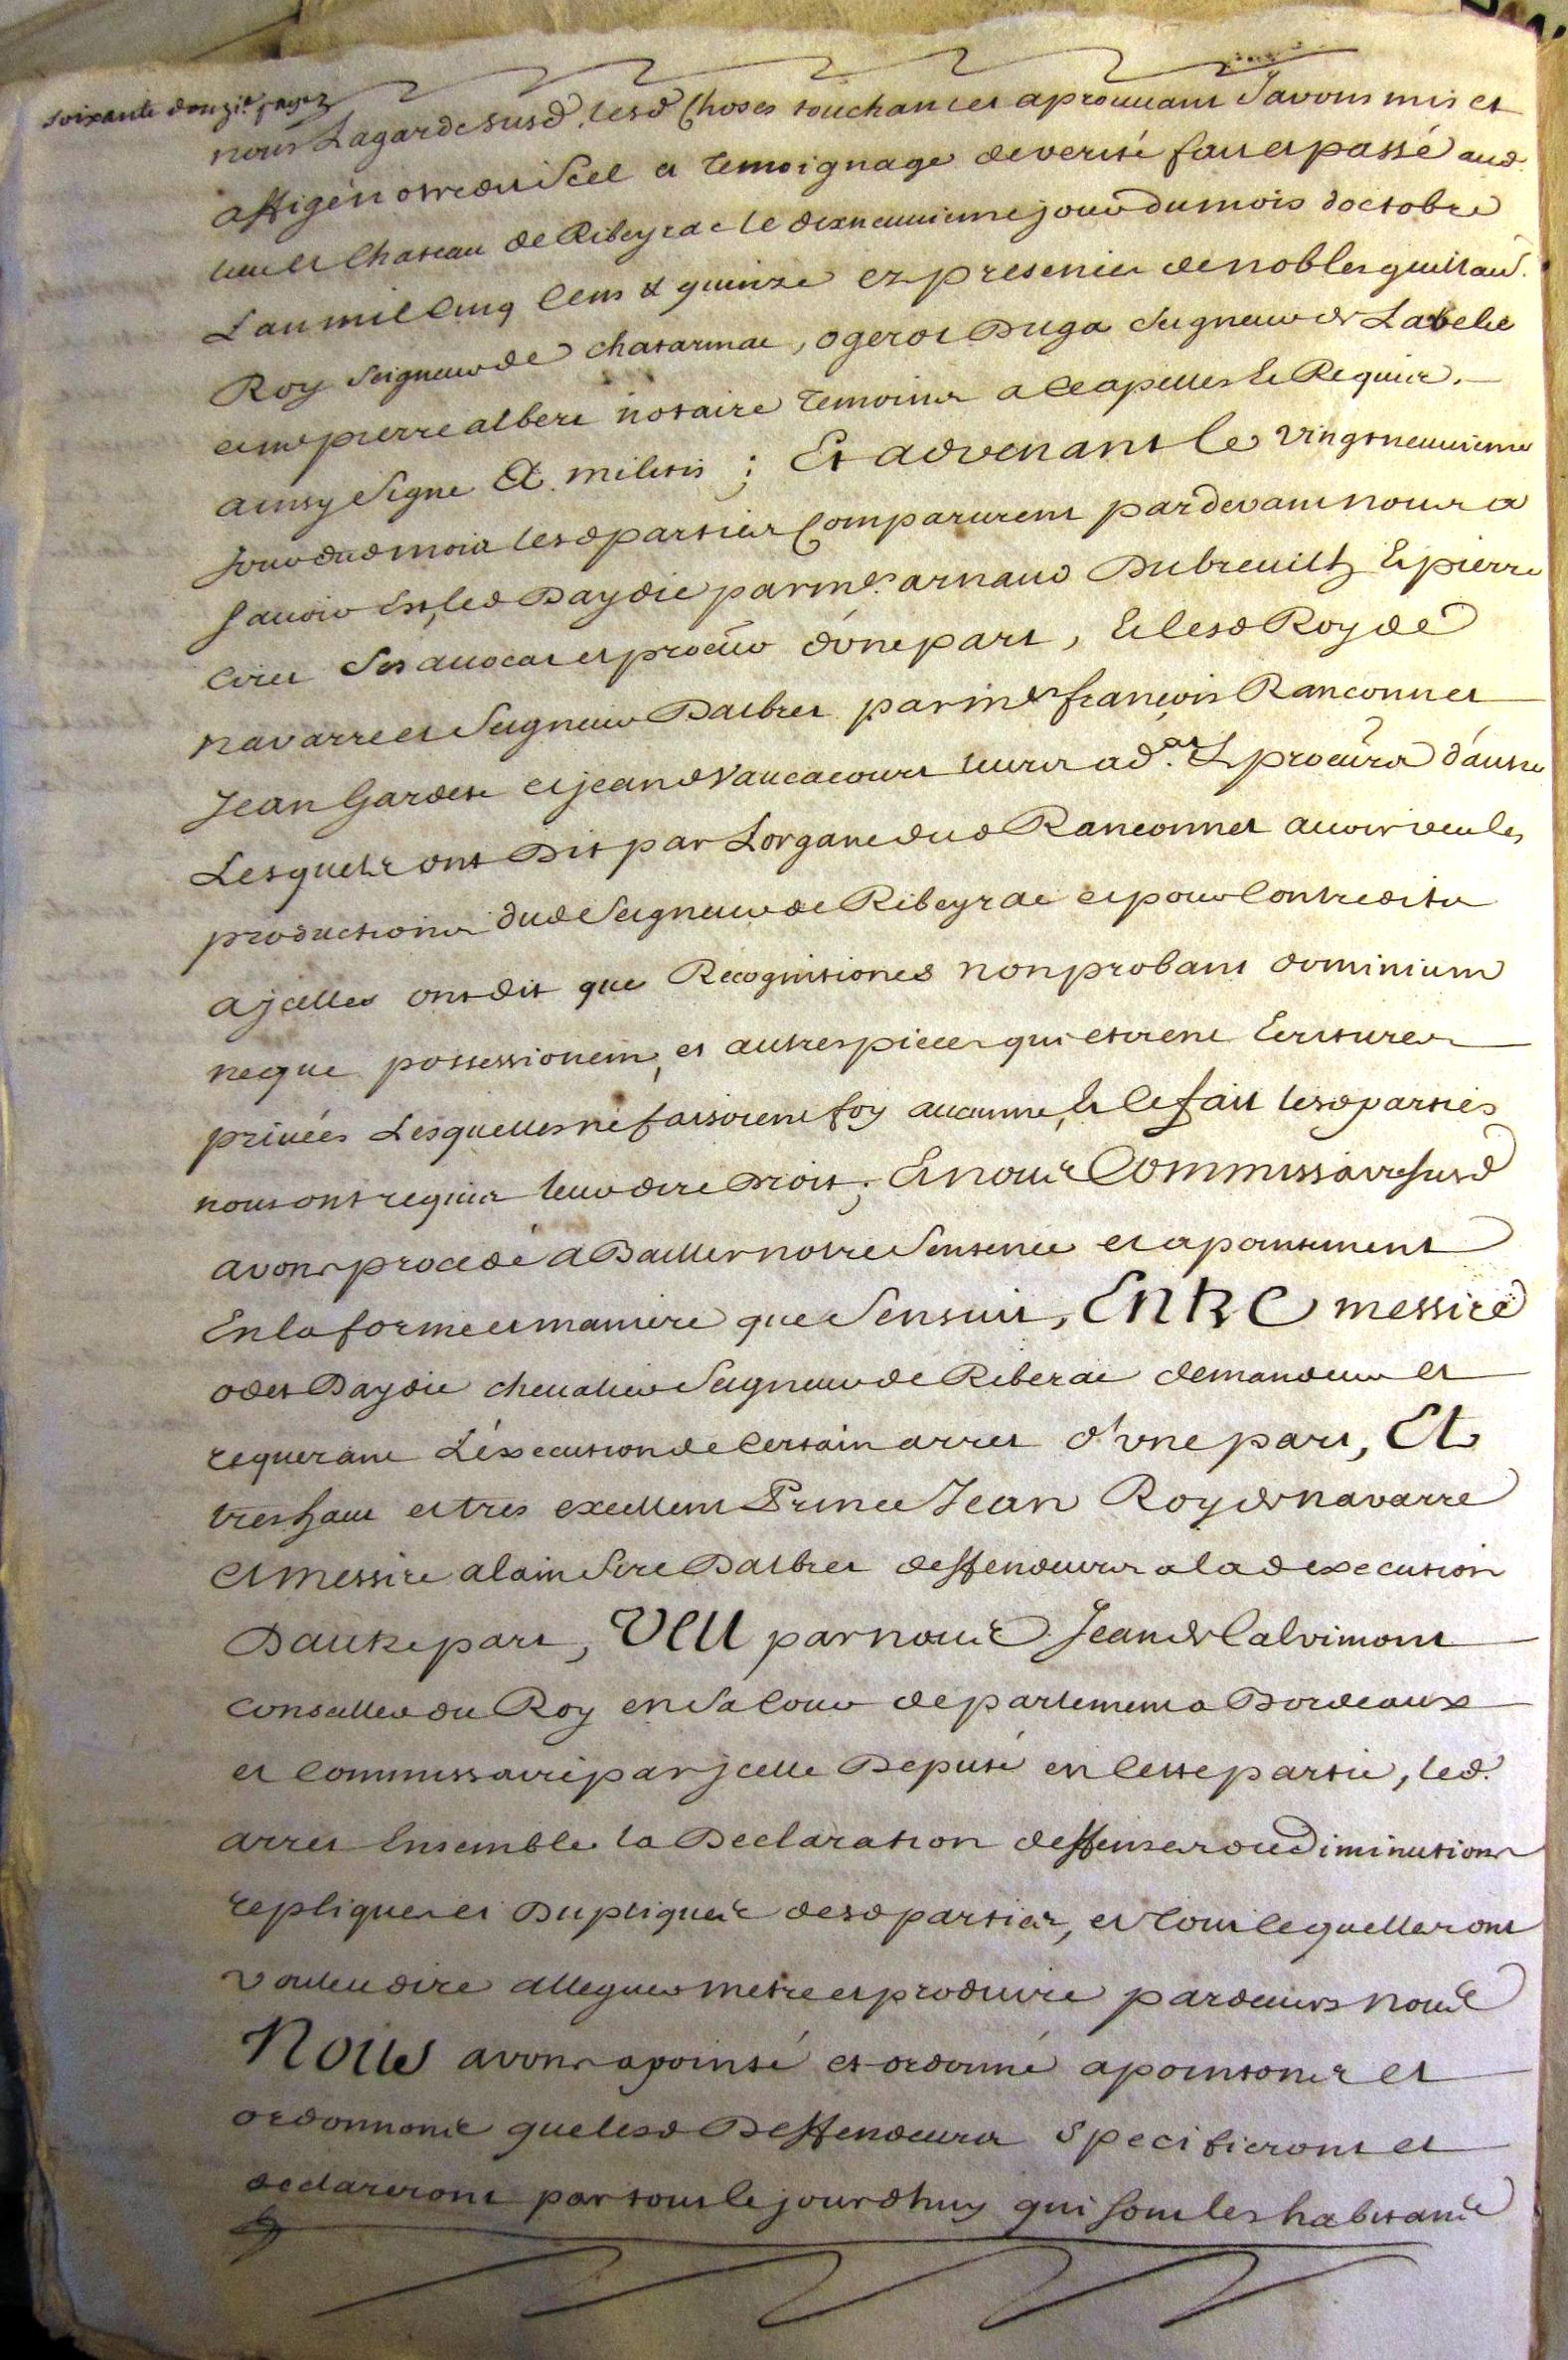 soixante douzie. pagez
nous Lagarde susd. lesd Choses touchantes aprouvant J avons mis et
affigé notre dit Scel a temoignage de verité fait et passé aud.
lieu et Chateau de Ribeyrac le dixneuvieme jour du mois doctobre
L an mil Cinq Cens & quinze ez presences de nobles guillau.
Roy Seigneur de chatarmac, ogerot Duga Seigneur de Labelie
et me pierre albert notaire temoins a Ce apelles et Requis.
ainsy Signe A. militis ; Et advenant le vingt neuvieme
Jour dud mois lesd parties Comparurent pardevant nous a
Savoir Est, led Daydie par me. arnaud Dubreuilh Et pierre
Ses avocat et procur d'une part, Et lesd Roy de
navarre et Seigneur Dalbret par me francois Ranconnet
Jean Gardese et jean de Vaucacourt leurs ad.at Et procurs d'autre
Lesquels ont Dit par Lorgane dud Ranconnet avoir veu les
productions dud Seigneur de Ribeyrac et pour Contredits
a jcelles ont dit que Recognitiones non probant dominium
neque possessionem, et autres pieces qui etoient Ecritures
privées Lesquelles ne faisoient foy aucunne, Et Ce fait lesd parties
nous ont requis leur dire Droit ; Et nous Commissaire susd
avons procedé a Bailler notre Sentence et apointement
En la forme et maniere que S ensuit, Entre messire
odet Daydie chevalier Seigneur de Riberac demandeur et
requerant L'execution de Certain arret d'une part, Et
tres haut et tres excellent Prince Jean Roy de navarre
et messire alain Sire Dalbret deffendeurs a lad execution
Dautre part, Veu par nous Jean de Calvimont
Conseiller du Roy en Sa Cour de parlement a Bordeaux
et Commissaire par jcelle Deputé en Cette partie, led.
arret Ensemble la Declaration deffenses ou Diminutions
repliques et Dupliques desd parties, et tout Ce quelles ont
voulu dire alleguer metre et produire pardevers nous
Nous avons apointé et ordonné apointons et
ordonnons que lesd Deffendeurs specifieront et
declareront par tout le jourdhuy qui sont les habitans